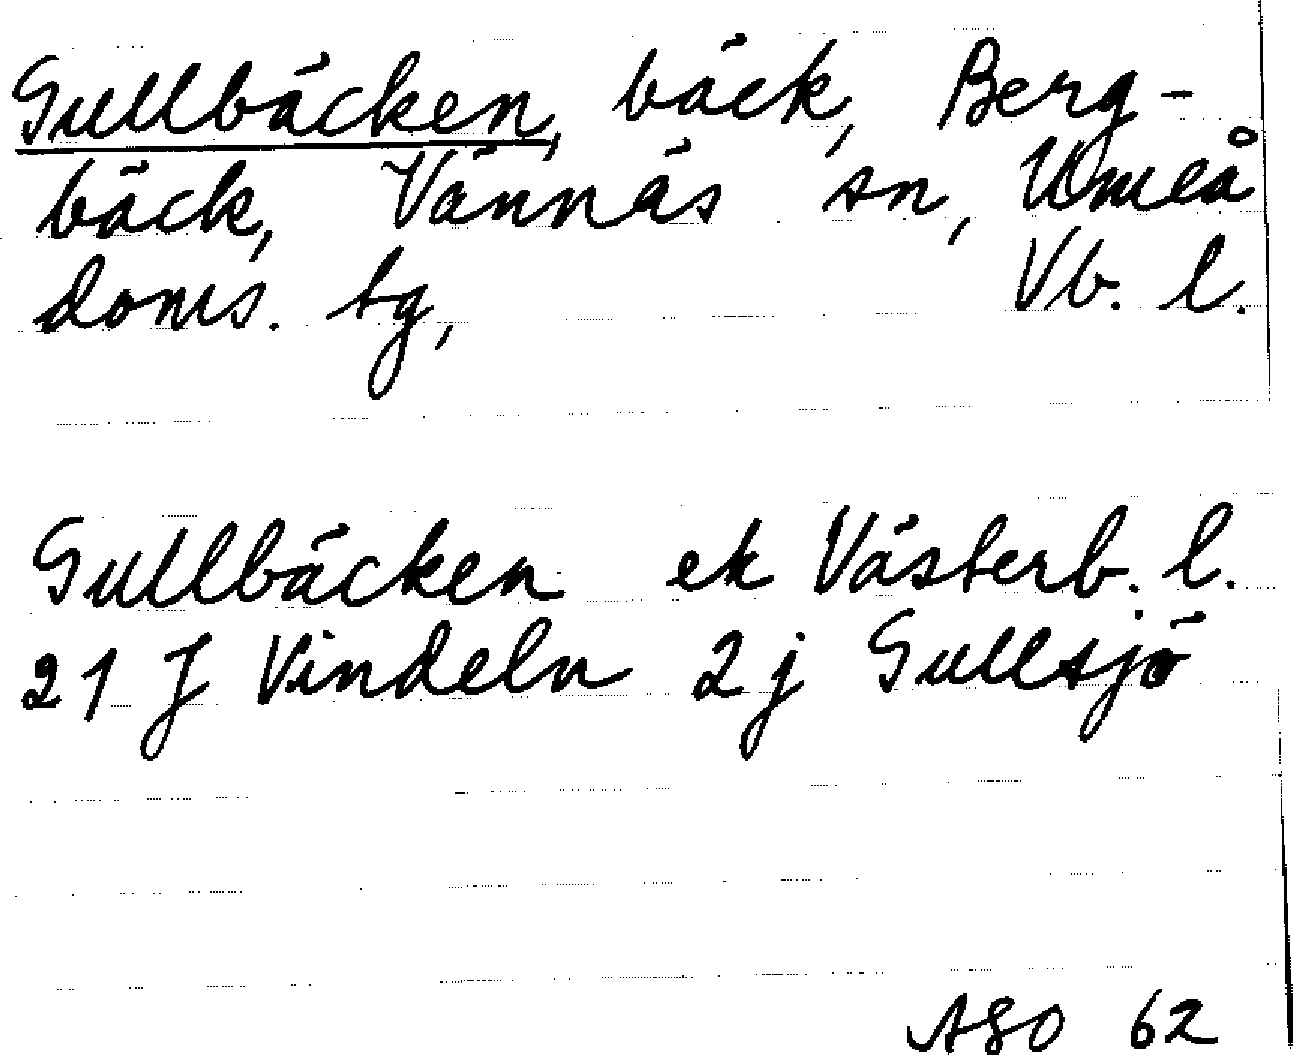 Gullbäcken, bäck, Berg-
bäck, Vännäs sn, Umeå
doms. tg, Vb. l.
Gullbäcken ek Västerb. l.
21 J Vindeln 2j Gullsjö
ASO 62